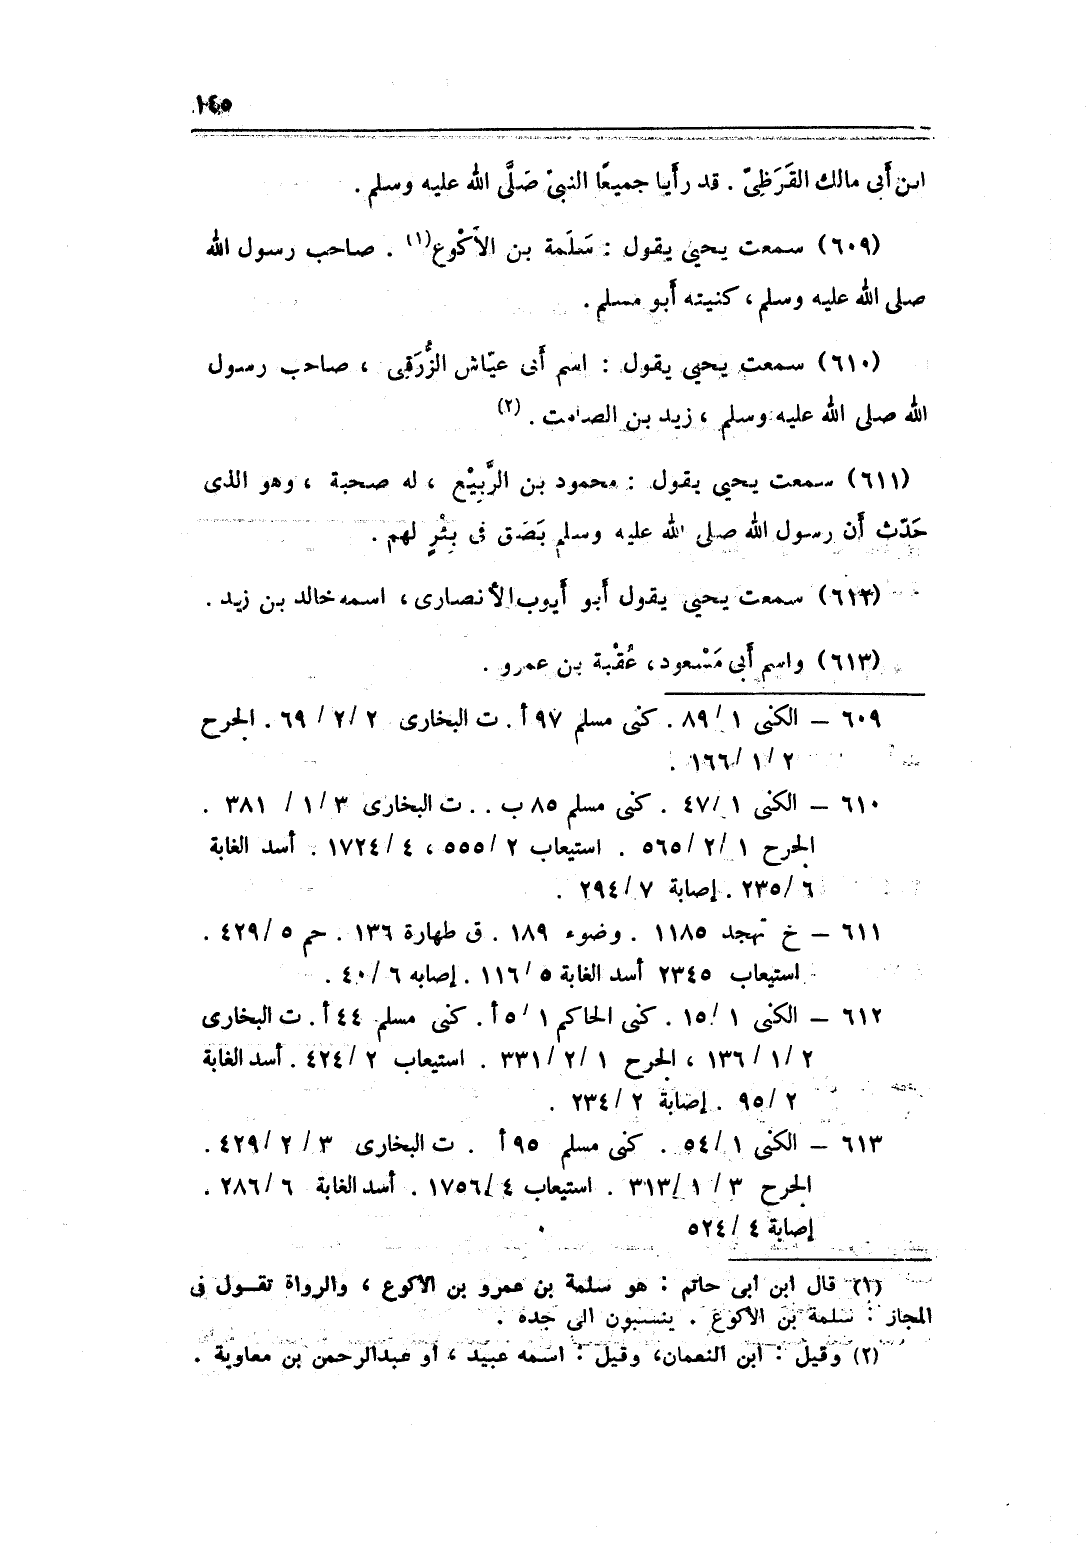 ١٤٥
ابن أبى مالك القَرَظِىّ . قد رأَيا جميعًا النبىّ صَلَّى الله عليه وسلم .
(٦٠٩) سمعت يحيى يقول : سَلَمة بن الأَكْوع(١) . صاحب رسول الله
صلى الله عليه وسلم ، كنيته أَبو مسلم .
(٦١٠) سمعت يحيى يقول : اسم أَبى عيّاش الزُّرَقى ، صاحب رسول
الله صلى الله عليه وسلم ، زيد بن الصامت . (٢)
(٦١١) سمعت يحيى يقول : محمود بن الرَّبِيْع ، له صحبة ، وهو الذى
حَدّث أَن رسول الله صلى الله عليه وسلم بَصَق فى بِئْرٍ لهم .
(٦١٢) سمعت يحيى يقول أَبو أَيوب الأنصارى ، اسمه خالد بن زيد .
(٦١٣) واسم أَبى مَسْعود، عُقْبة بن عمرو .
٦٠٩ – الكنى ١ / ٨٩ . كنى مسلم ٩٧ أ . ت البخارى ٢ / ٢ / ٦٩ . الجرح
٢ / ١ / ١٦٦ .
٦١٠ – الكنى ١ / ٤٧ . كنى مسلم ٨٥ ب . . ت البخارى ٣ / ١ / ٣٨١ .
الجرح ١ / ٢ / ٥٦٥ . استيعاب ٢ / ٥٥٥ ، ٤ / ١٧٢٤ . أسد الغابة
٦ / ٢٣٥ . إصابة ٧ / ٢٩٤ .
٦١١ – خ تهجد ١١٨٥ . وضوء ١٨٩ . ق طهارة ١٣٦ . حم ٥ / ٤٢٩ .
استيعاب ٢٣٤٥ أسد الغابة ٥ / ١١٦ . إصابه ٦ / ٤٠ .
٦١٢ – الكنى ١ / ١٥ . كنى الحاكم ١ / ٥ أ . كنى مسلم ٤٤ أ . ت البخارى
٢ / ١ / ١٣٦ ، الجرح ١ / ٢ / ٣٣١ . استيعاب ٢ / ٤٢٤ . أسد الغابة
٢ / ٩٥ . إصابة ٢ / ٢٣٤ .
٦١٣ – الكنى ١ / ٥٤ . كنى مسلم ٩٥ أ . ت البخارى ٣ / ٢ / ٤٢٩ .
الجرح ٣ / ١ / ٣١٣ . استيعاب ٤ / ١٧٥٦ . أسد الغابة ٦ / ٢٨٦ .
إصابة ٤ / ٥٢٤ .
(١) قال ابن أبى حاتم : هو سلمة بن عمرو بن الأكوع ، والرواة تقول فى
المجاز : سلمة بن الأكوع . ينسبون الى جده .
(٢) وقيل : ابن النعمان، وقيل : اسمه عبيد ، أو عبدالرحمن بن معاوية .